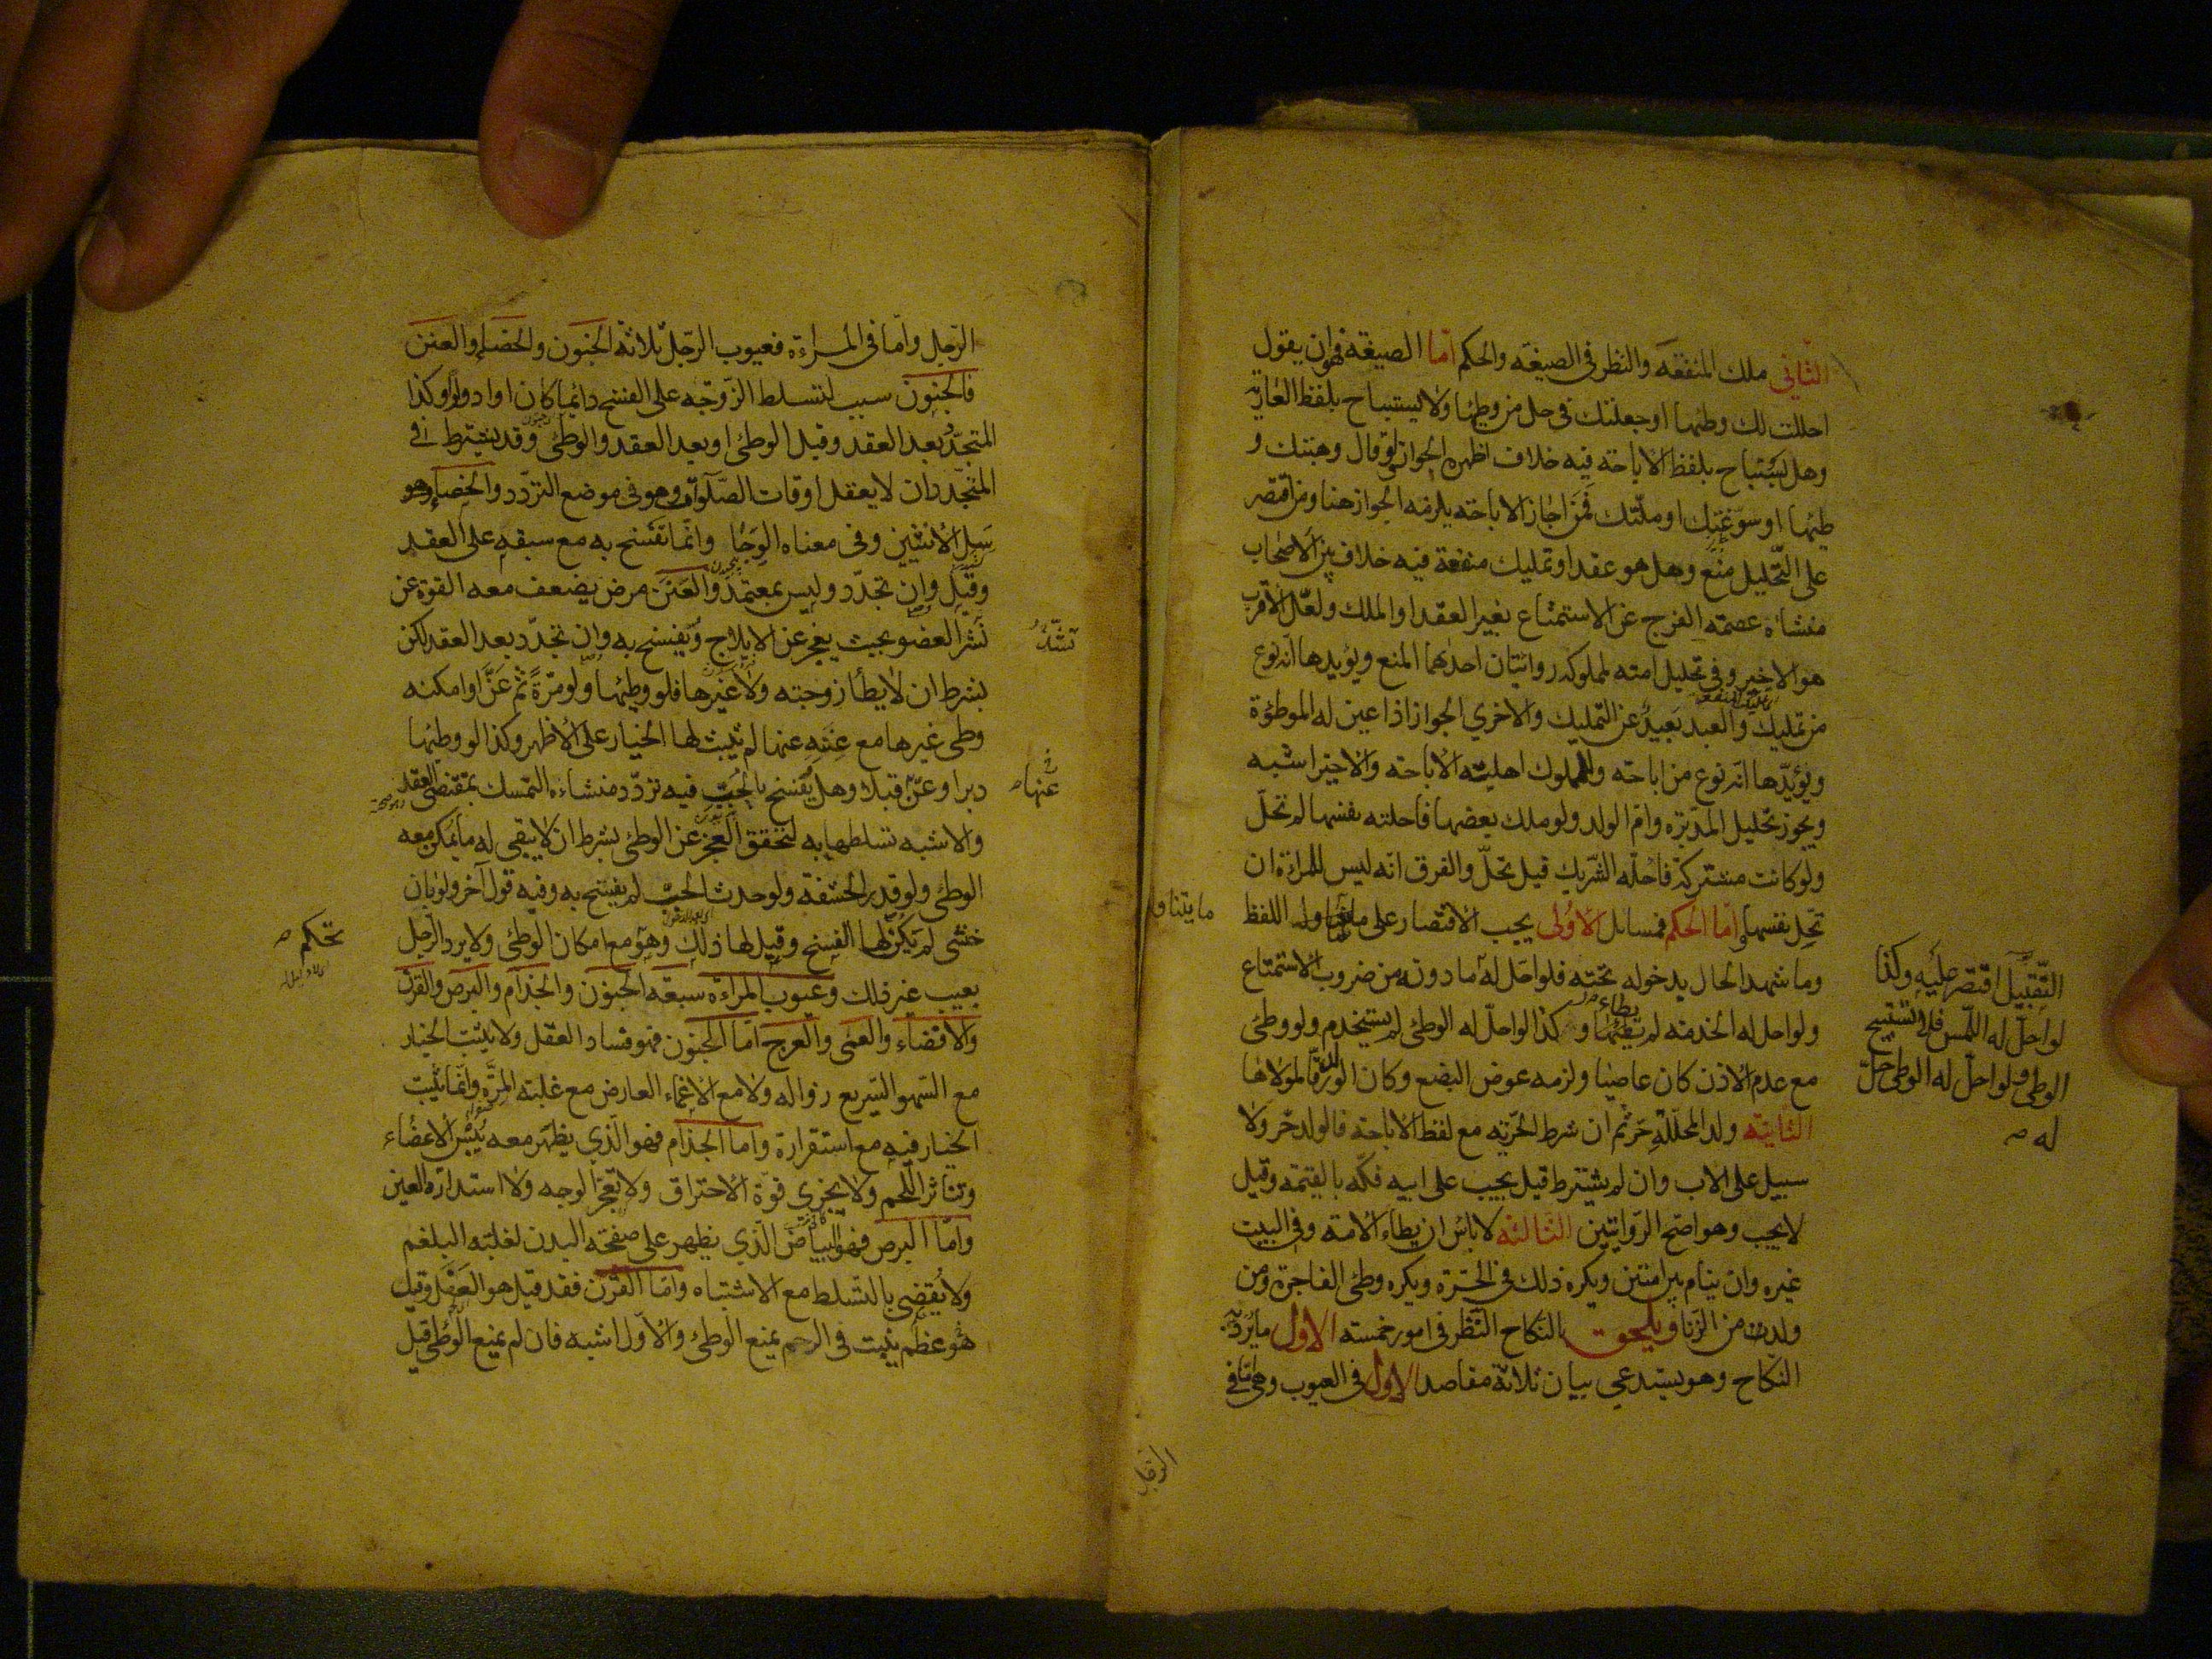 الثاني ملك المنفعة والنظر في الصيغة والحكم اما الصيغة فهو ان يقول
احللت لك وطئها او جعلتك في حل من وطئها ولا يستباح بلفظ العارية
وهل يستباح بلفظ الاباحة فيه خلاف اظهره الجواز ولو قال وهبتك و
طئها او سوغتك او ملكتك فمن اجاز الاباحة يلزمه الجواز هنا ومن اقتصر
على التحليل منع وهل هو عقد او تمليك منفعة فيه خلاف بين الاصحاب
منشاه عصمة الفرج عن الاستمتاع بغير العقد او الملك ولعل الاقرب
هو الاخير وفي تحليل امته لمملوكه روايتان احدهما المنع ويؤيدها انه نوع
من تمليك والعبد بعيد عن التمليك والاخري الجواز اذا عين له الموطؤة
ويؤيدها انه نوع من اباحة وللمملوك اهلية الاباحة والاخير اشبه
ويجوز تحليل المدبرة وام الولد ولو ملك بعضها فاحلته نفسها لم تحل
ولو كانت مشتركة فاحله الشريك قيل تحل والفرق انه ليس للمراة ان
تحل نفسها واما الحكم فمسائل الاولى يجب الاقتصار على ما يتناوله اللفظ
ما يتناو
وما شهد الحال بدخوله تحته فلو احل له ما دونه من ضروب الاستمتاع
ولو احل له الخدمة لم يطئها وكذا لو احل له الوطئ لم يستخدم ولو وطئ
مع عدم الاذن كان عاصيا ولزمه عوض البضع وكان الولد رقا لمولاها
الثانية ولد المحللة حر ثم ان شرط الحرية مع لفظ الاباحة فالولد حر ولا
سبيل على الاب وان لم يشترط قيل يجب على ابيه فكه بالقيمة وقيل
لا يجب وهو اصح الروايتين الثالثة لا باس ان يطاء الامة وفي البيت
غيره وان ينام بين امتين ويكره ذلك في الحرة ويكره وطئ الفاجرة ومن
ولدت من الزنا ويلحق بالنكاح النظر في امور خمسة الاول ما يرد به
النكاح وهو يستدعي بيان ثلاثة مقاصد الاول في العيوب وهي اما في
التقبيل اقتصر عليه وكذا
لو احل له اللمس فلا يستبيح
الوطي ولو احل له الوطي حل
له صح
الرجل
الرجل واما في المراءة فعيوب الرجل ثلاثة الجنون والخصاء والعنن
فالجنون سبب لتسلط الزوجة على الفسخ دائما كان او ادوارا وكذا
المتجدد بعد العقد وقبل الوطئ او بعد العقد والوطئ وقد يشترط في
المتجدد ان لا يعقل اوقات الصلوات وهو في موضع التردد والخصاء هو
سل الانثيين وفي معناه الوجا وانما تفسخ به مع سبقه على العقد
وقيل وان تجدد وليس بمعتمد والعنن مرض يضعف معه القوة عن
نشر العضو بحيث يعجز عن الايلاج ويفسخ به وان تجدد بعد العقد لكن
بشرط ان لا يطأ زوجته ولا غيرها فلو وطئها ولو مرة ثم عن او امكنه
وطي غيرها مع عننه عنها لم يثبت لها الخيار على الاظهر وكذا لو وطئها
دبرا وعن قبلا وهل يفسخ بالجب فيه تردد منشاءه التمسك بمقتضى العقد
والاشبه تسلطها به لتحقق العجز عن الوطئ بشرط ان لا يبقى له ما يمكن معه
الوطئ ولو قدر الحشفة ولو حدث الجب لم يفسخ به وفيه قول آخر ولو بان
خنثى لم يكن لها الفسخ وقيل لها ذلك وهو مع امكان الوطئ ولا يرد الرجل
بعيب غير ذلك وعيوب المراءة سبعة الجنون والجذام والبرص والقرن
والافضاء والعمى والعرج اما الجنون فهو فساد العقل ولا يثبت الخيار
مع السهو السريع زواله ولا مع الاغماء العارض مع غلبة المرة وانما يثبت
الخيار فيه مع استقراره واما الجذام فهو الذي يظهر معه يبس الاعضاء
وتناثر اللحم ولا يجزي قوة الاحتراق ولا تعجر الوجه ولا استدارة العين
واما البرص فهو البياض الذي يظهر على صفحة البدن لغلبة البلغم
ولا يقضي بالتسلط مع الاشتباه واما القرن فقد قيل هو العفل وقيل
هو عظم ينبت في الرحم يمنع الوطئ والاول اشبه فان لم يمنع الوطي قيل
عنها
تحكم صح